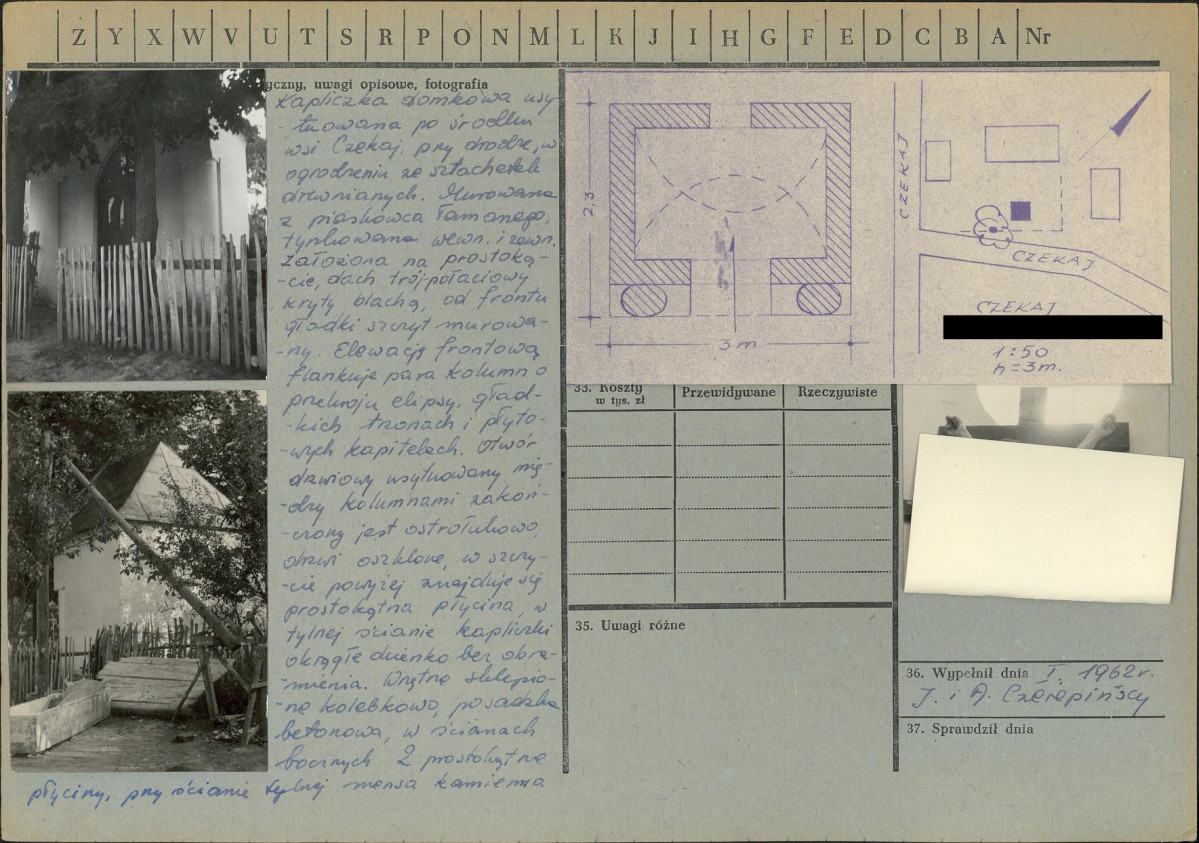 Z Y X W V U T S R P O N M L K J I H G F E D C B A Nr
yczny, uwagi opisowe, fotografia
Kapliczka domkowa usy-
-tuowana po środku
wsi Czekaj, przy drodze, w
ogrodzeniu ze sztachetek
drewnianych. Murowana
z piaskowca łamanego,
tynkowana wewn. i zewn.
Założona na prostoką-
-cie, dach trój-połaciowy
kryty blachą, od frontu
gładki szczyt murowa-
-ny. Elewację frontową
flankuje para kolumn o
przekroju elipsy, gład-
-kich trzonach i płyto-
-wych kapitelach. Otwór
drzwiowy usytuowany mię-
-dzy kolumnami zakoń-
-czony jest ostrołukowo,
drzwi oszklone, w szczy-
-cie powyżej znajduje się
prostokątna płycina, w
tylnej ścianie kapliczki
okrągłe okienko bez obra-
-mienia. Wnętrze sklepio-
-ne kolebkowo, posadzka
betonowa, w ścianach
bocznych 2 prostokątne
płyciny, przy ścianie tylnej mensa kamienna
2,3
3 m
CZEKAJ
CZEKAJ
CZEKAJ
1:50
h=3m.
33. Koszty
w tys. zł
Przewidywane
Rzeczywiste
35. Uwagi różne
36. Wypełnił dnia I. 1962r.
J. i A. Czerepińscy
37. Sprawdził dnia